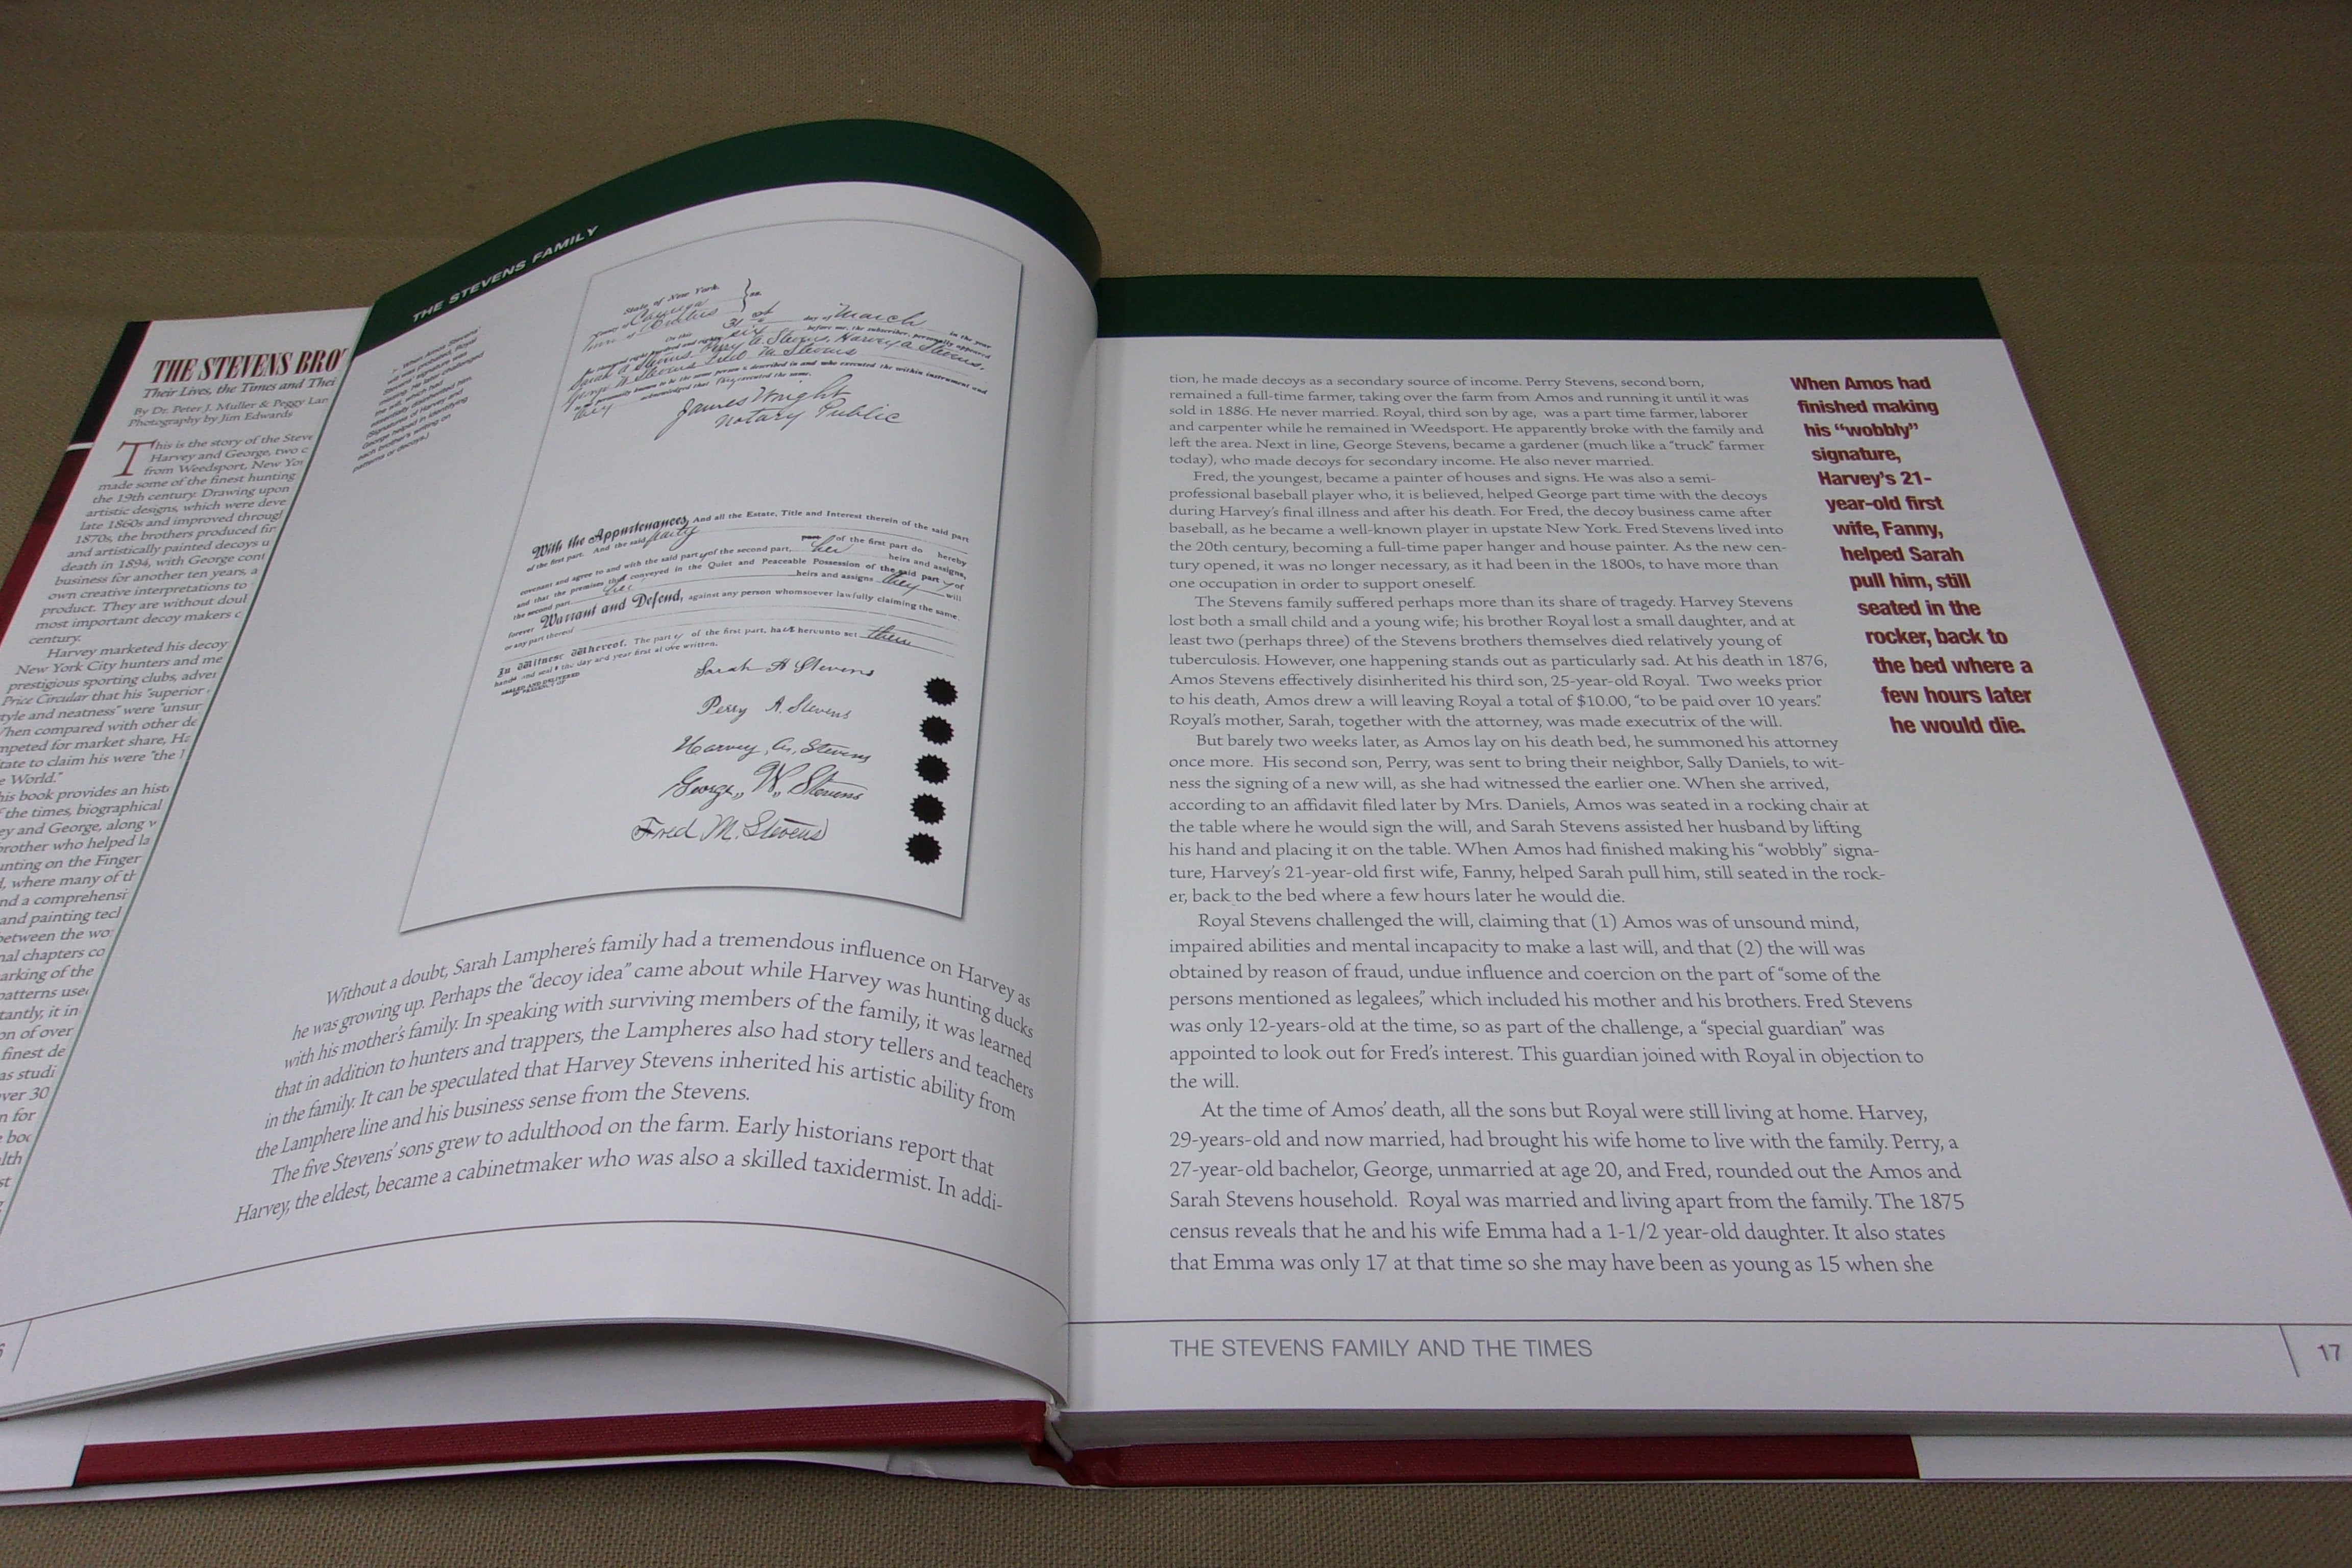 THE STEVENS BRO
Their Lives, the Times and Thei
By Dr. Peter J. Muller & Peggy Lan
Photography by Jim Edwards
This is the story of the Steve
Harvey and George, two
from Weedsport, New Yor
made some of the finest hunting
the 19th century. Drawing upon
artistic designs, which were deve
late 1860s and improved throug
1870s, the brothers produced fin
and artistically painted decoys u
death in 1894, with George cont
business for another ten years, a
own creative interpretations to
product. They are without doul
most important decoy makers
century.
Harvey marketed his decoy
New York City hunters and me
prestigious sporting clubs, adver
Price Circular that his "superior
tyle and neatness" were "unsur
When compared with other de
mpeted for market share, Ha
tate to claim his were "the
World."
his book provides an hist
f the times, biographical
ey and George, along
brother who helped la
unting on the Finger
where many of th
nd a comprehensi
and painting tecl
between the wo
nal chapters co
arking of the
patterns use
tantly, it in
on of over
finest de
as studi
ver 30
n for
THE STEVENS FAMILY
When Amos Stevens'
will was probated, Royal
Stevens' signature was
missing. He later challenged
the will, which had
essentially disinherited him.
(Signatures of Harvey and
George helped in identifying
each brother's writing on
patterns or decoys.)
State of New York
Town of Brutus
On this 31st day of March in the year
six before me, the subscriber, personally appeared
Perry A. Stevens, Harvey A. Stevens,
George W. Stevens Fred M. Stevens
acknowledged that they executed the same.
James Wright
Notary Public
With the Appurtenances, And all the Estate, Title and Interest therein of the said part
of the first part. And the said party of the first part do hereby
covenant and agree to and with the said party of the second part, her heirs and assigns,
and that the premises thus conveyed in the Quiet and Peaceable Possession of the said party of
the second part her heirs and assigns they will
forever Warrant and Defend, against any person whomsoever lawfully claiming the same,
or any part thereof
In Witness Whereof, The part of the first part, have hereunto set their
hands and seal the day and year first above written.
SEALED AND DELIVERED
IN PRESENCE OF
Sarah A Stevens
Perry A. Stevens
Harvey A. Stevens
George W. Stevens
Fred M. Stevens
Without a doubt, Sarah Lamphere's family had a tremendous influence on Harvey as
he was growing up. Perhaps the "decoy idea" came about while Harvey was hunting ducks
with his mother's family. In speaking with surviving members of the family, it was learned
that in addition to hunters and trappers, the Lampheres also had story tellers and teachers
in the family. It can be speculated that Harvey Stevens inherited his artistic ability from
the Lamphere line and his business sense from the Stevens.
The five Stevens' sons grew to adulthood on the farm. Early historians report that
Harvey, the eldest, became a cabinetmaker who was also a skilled taxidermist. In addi-
tion, he made decoys as a secondary source of income. Perry Stevens, second born,
remained a full-time farmer, taking over the farm from Amos and running it until it was
sold in 1886. He never married. Royal, third son by age, was a part time farmer, laborer
and carpenter while he remained in Weedsport. He apparently broke with the family and
left the area. Next in line, George Stevens, became a gardener (much like a "truck" farmer
today), who made decoys for secondary income. He also never married.
Fred, the youngest, became a painter of houses and signs. He was also a semi-
professional baseball player who, it is believed, helped George part time with the decoys
during Harvey's final illness and after his death. For Fred, the decoy business came after
baseball, as he became a well-known player in upstate New York. Fred Stevens lived into
the 20th century, becoming a full-time paper hanger and house painter. As the new cen-
tury opened, it was no longer necessary, as it had been in the 1800s, to have more than
one occupation in order to support oneself.
The Stevens family suffered perhaps more than its share of tragedy. Harvey Stevens
lost both a small child and a young wife; his brother Royal lost a small daughter, and at
least two (perhaps three) of the Stevens brothers themselves died relatively young of
tuberculosis. However, one happening stands out as particularly sad. At his death in 1876,
Amos Stevens effectively disinherited his third son, 25-year-old Royal. Two weeks prior
to his death, Amos drew a will leaving Royal a total of $10.00, "to be paid over 10 years."
Royal's mother, Sarah, together with the attorney, was made executrix of the will.
But barely two weeks later, as Amos lay on his death bed, he summoned his attorney
once more. His second son, Perry, was sent to bring their neighbor, Sally Daniels, to wit-
ness the signing of a new will, as she had witnessed the earlier one. When she arrived,
according to an affidavit filed later by Mrs. Daniels, Amos was seated in a rocking chair at
the table where he would sign the will, and Sarah Stevens assisted her husband by lifting
his hand and placing it on the table. When Amos had finished making his "wobbly" signa-
ture, Harvey's 21-year-old first wife, Fanny, helped Sarah pull him, still seated in the rock-
er, back to the bed where a few hours later he would die.
Royal Stevens challenged the will, claiming that (1) Amos was of unsound mind,
impaired abilities and mental incapacity to make a last will, and that (2) the will was
obtained by reason of fraud, undue influence and coercion on the part of "some of the
persons mentioned as legalees," which included his mother and his brothers. Fred Stevens
was only 12-years-old at the time, so as part of the challenge, a "special guardian" was
appointed to look out for Fred's interest. This guardian joined with Royal in objection to
the will.
At the time of Amos' death, all the sons but Royal were still living at home. Harvey,
29-years-old and now married, had brought his wife home to live with the family. Perry, a
27-year-old bachelor, George, unmarried at age 20, and Fred, rounded out the Amos and
Sarah Stevens household. Royal was married and living apart from the family. The 1875
census reveals that he and his wife Emma had a 1-1/2 year-old daughter. It also states
that Emma was only 17 at that time so she may have been as young as 15 when she
When Amos had
finished making
his "wobbly"
signature,
Harvey's 21-
year-old first
wife, Fanny,
helped Sarah
pull him, still
seated in the
rocker, back to
the bed where a
few hours later
he would die.
THE STEVENS FAMILY AND THE TIMES
17